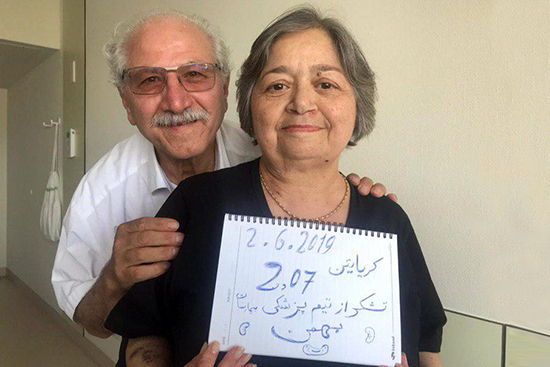 2.6.2019
کریایتن
2.07
تشکر از تیم پزشکی
بهمن